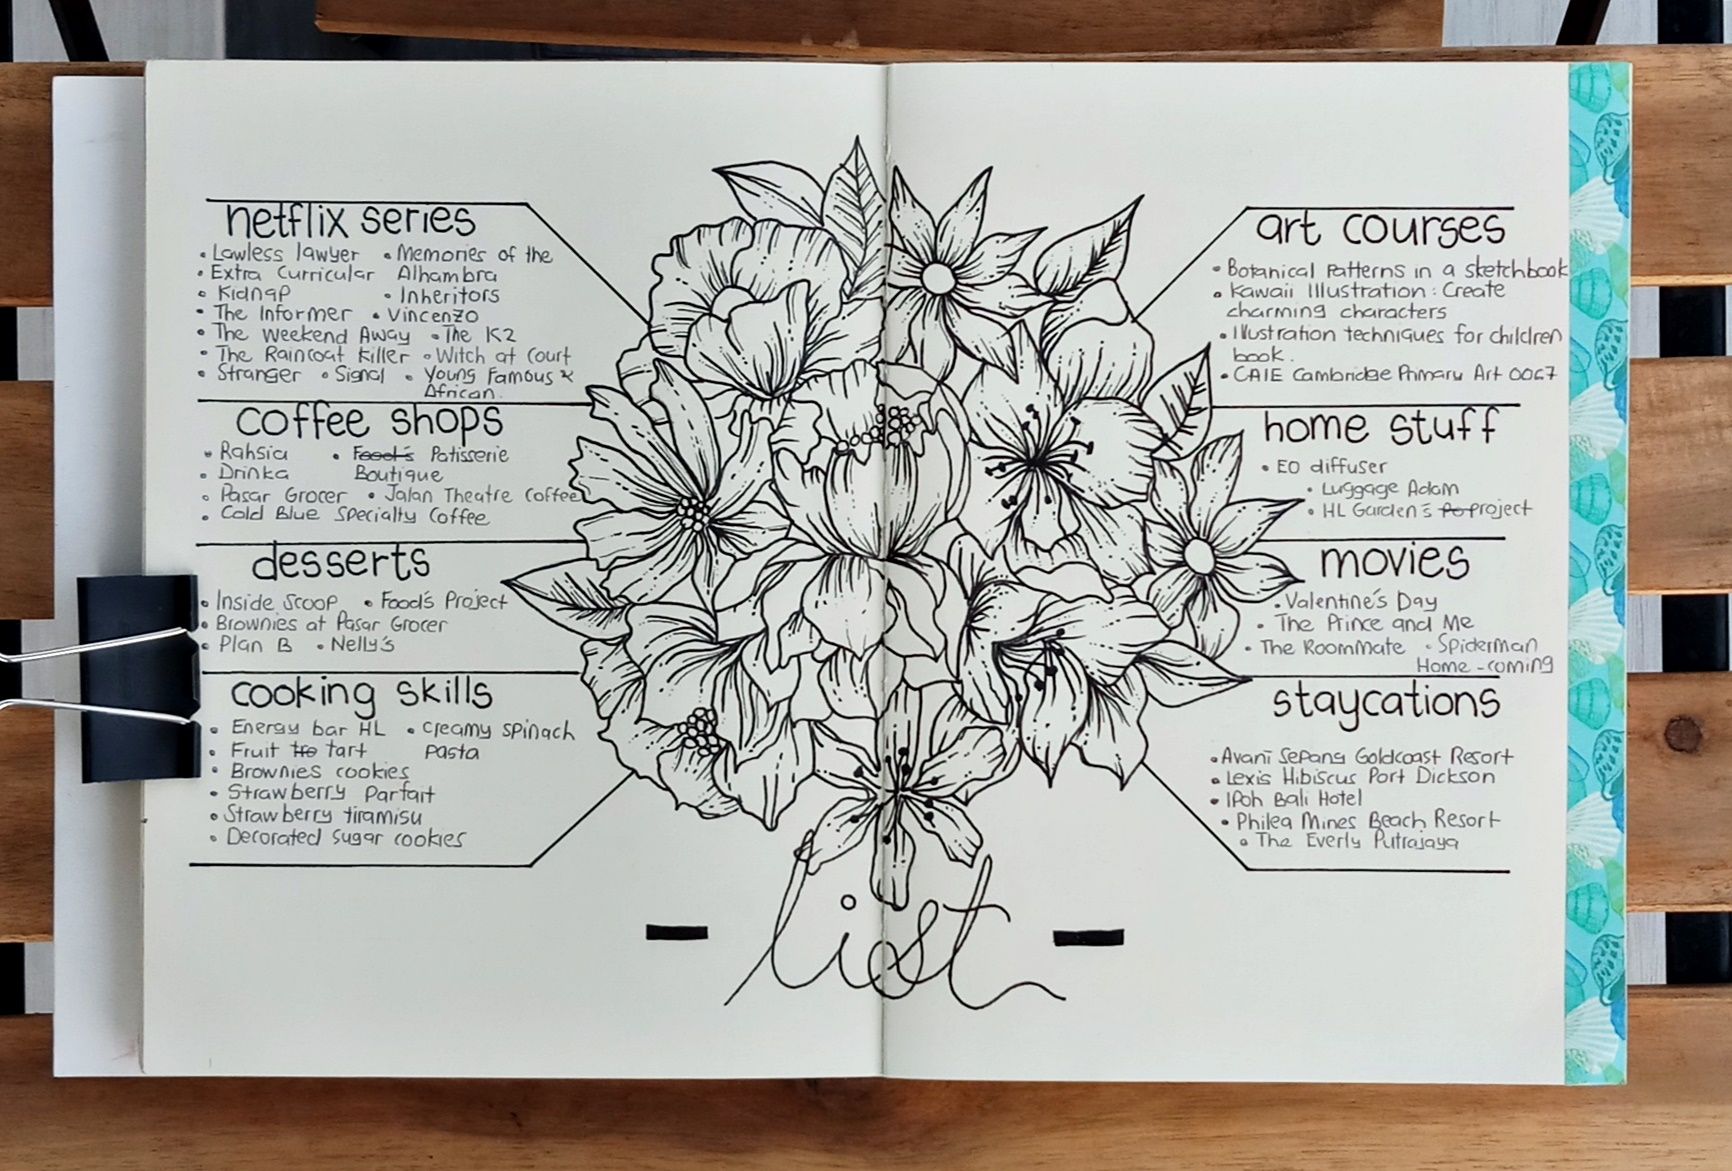 netflix series
• Lawless lawyer • Memories of the
• Extra Curricular Alhambra
• Kidnap • Inheritors
• The Informer • Vincenzo
• The Weekend Away • The K2
• The Raincoat Killer • Witch at Court
• Stranger • Signal • Young Famous &
African.
coffee shops
• Rahsia • Food's Patisserie
• Drinka Boutique
• Pasar Grocer • Jalan Theatre Coffee
• Cold Blue Specialty Coffee
desserts
• Inside Scoop • Food's Project
• Brownies at Pasar Grocer
• Plan B • Nelly's
cooking skills
• Energy bar HL • creamy spinach
• Fruit tart pasta
• Brownies cookies
• Strawberry Parfait
• Strawberry tiramisu
• Decorated sugar cookies
art courses
• Botanical Patterns in a sketchbook
• Kawaii Illustration : Create
charming characters
• Illustration techniques for children
book.
• CAIE Cambridge Primary Art 0067
home stuff
• EO diffuser
• Luggage Adam
• HL Garden's Po project
movies
• Valentine's Day
• The Prince and Me
• The Roommate • Spiderman
Home-coming
staycations
• Avani Sepang Goldcoast Resort
• Lexis Hibiscus Port Dickson
• Ipoh Bali Hotel
• Philea Mines Beach Resort
• The Everly Putrajaya
- list -